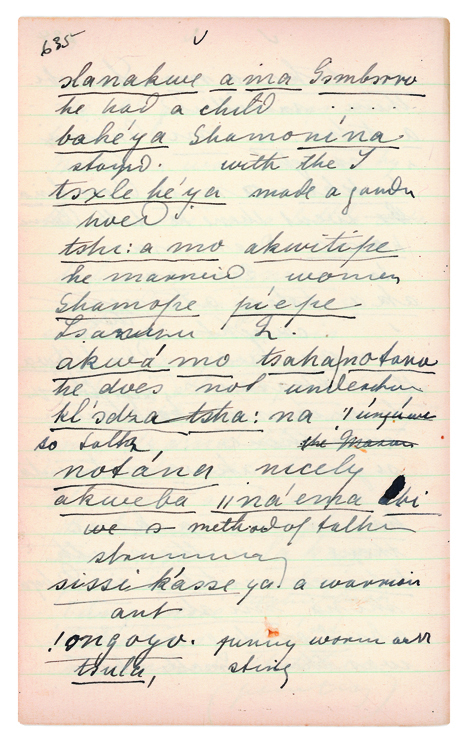 635
slanakwe a ina Gsmbsrro
he had a child
bahé'ya Shamoní'na
stand. with the S
tsxle hé'ya made a garden
hoed
tshi:a mo akwitipe
he married women
Shamope piepe
akwá mo tsaha notava
he does not understan
kl'sdza tsha: na
so talk
notána nicely
akweba ||ná'ema
we s method of talkin
stammering
sissi kásse ya a warrior
ant
!ongoyo. funny worm with
tsula, sting